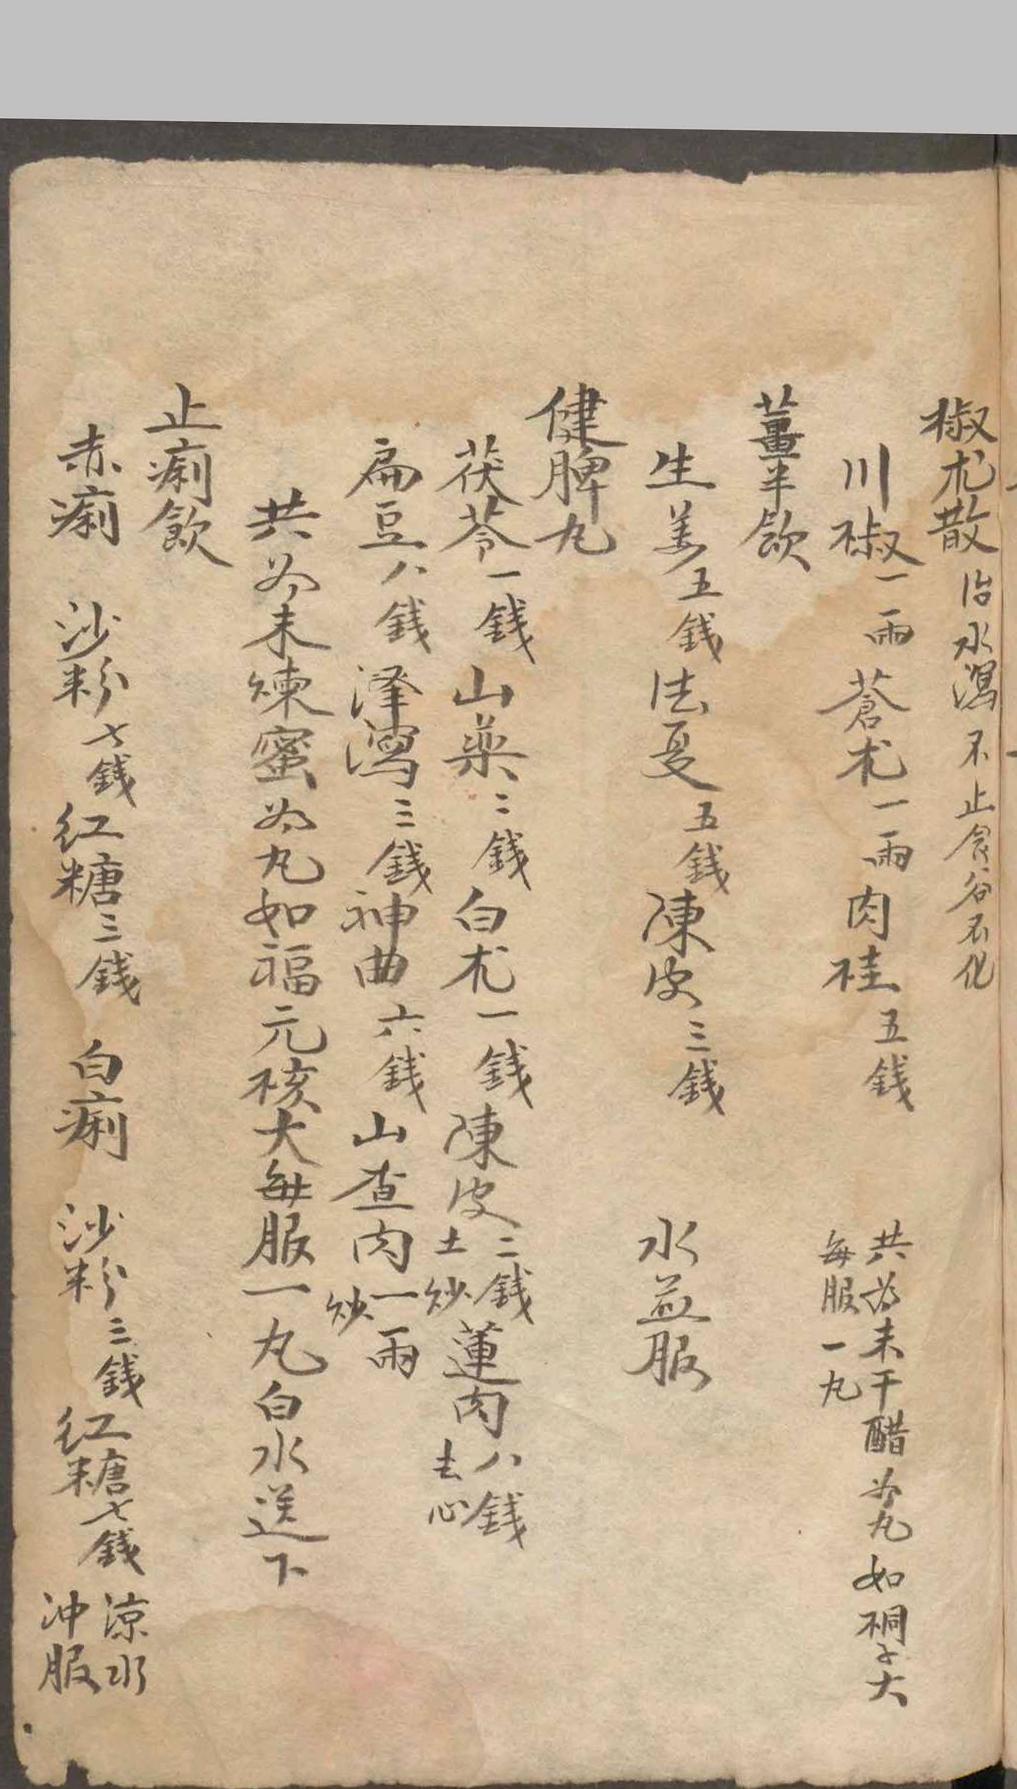 椒朮散 治水瀉不止食谷不化
川椒一兩 蒼朮一兩 肉桂五錢 共為末干醋為丸如桐子大 每服一丸
薑半飲
生姜五錢 法夏五錢 陳皮三錢 水益服
健脾丸
茯苓一錢 山藥三錢 白朮一錢 陳皮二錢土炒 蓮肉八錢去心
扁豆八錢 澤瀉三錢 神曲六錢 山查肉一兩炒
共為末煉蜜為丸如福元核大每服一丸白水送下
止痢飲
赤痢 沙粉七錢 红糖三錢 白痢 沙粉三錢 红糖七錢 涼水冲服